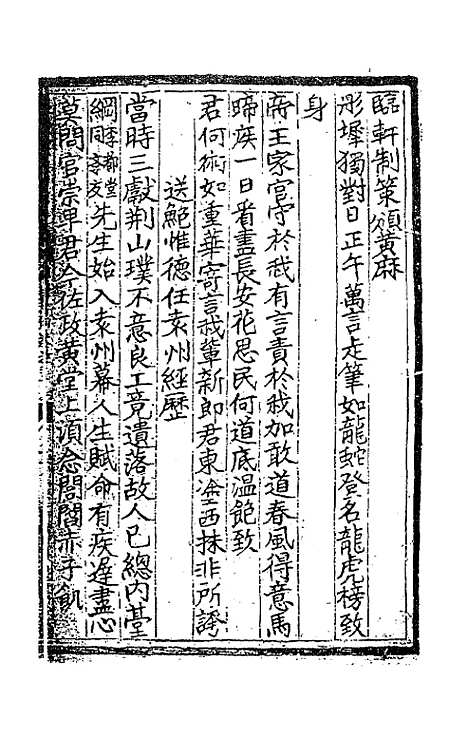 臨軒制策頒黃麻
彤墀獨對日正午萬言走筆如龍蛇登名龍虎榜致
身
帝王家官守於我有言責於我加敢道春風得意馬
蹄疾一日看盡長安花思民何道底温飽致
君何術如重華寄言我輩新郎君東塗西抹非所誇
送鮑惟德任袁州經歷
當時三獻荆山璞不意良工竟遺落故人已總内臺
綱同李都堂亨友先生始入袁州幕人生賦命有疾遲盡心
莫問官崇卑君今佐政黄堂上須念閭閻赤子飢